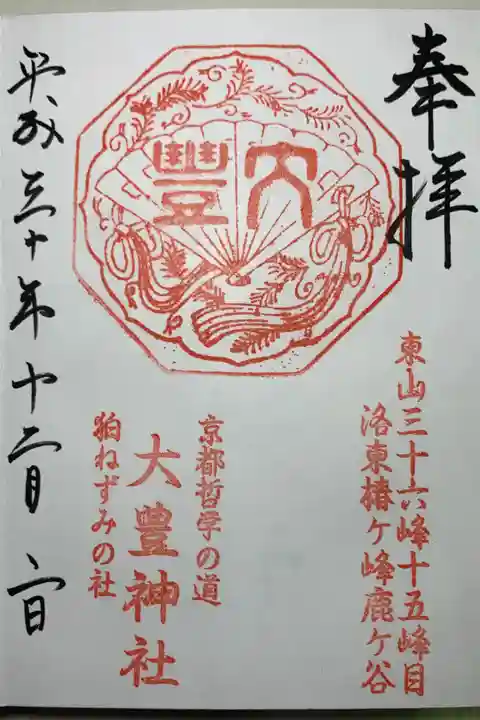 奉拝
東山三十六峰十五峰目
洛東椿ヶ峰鹿ヶ谷
大豊
京都哲学の道
大豊神社
狛ねずみの社
平成三十年十二月六日